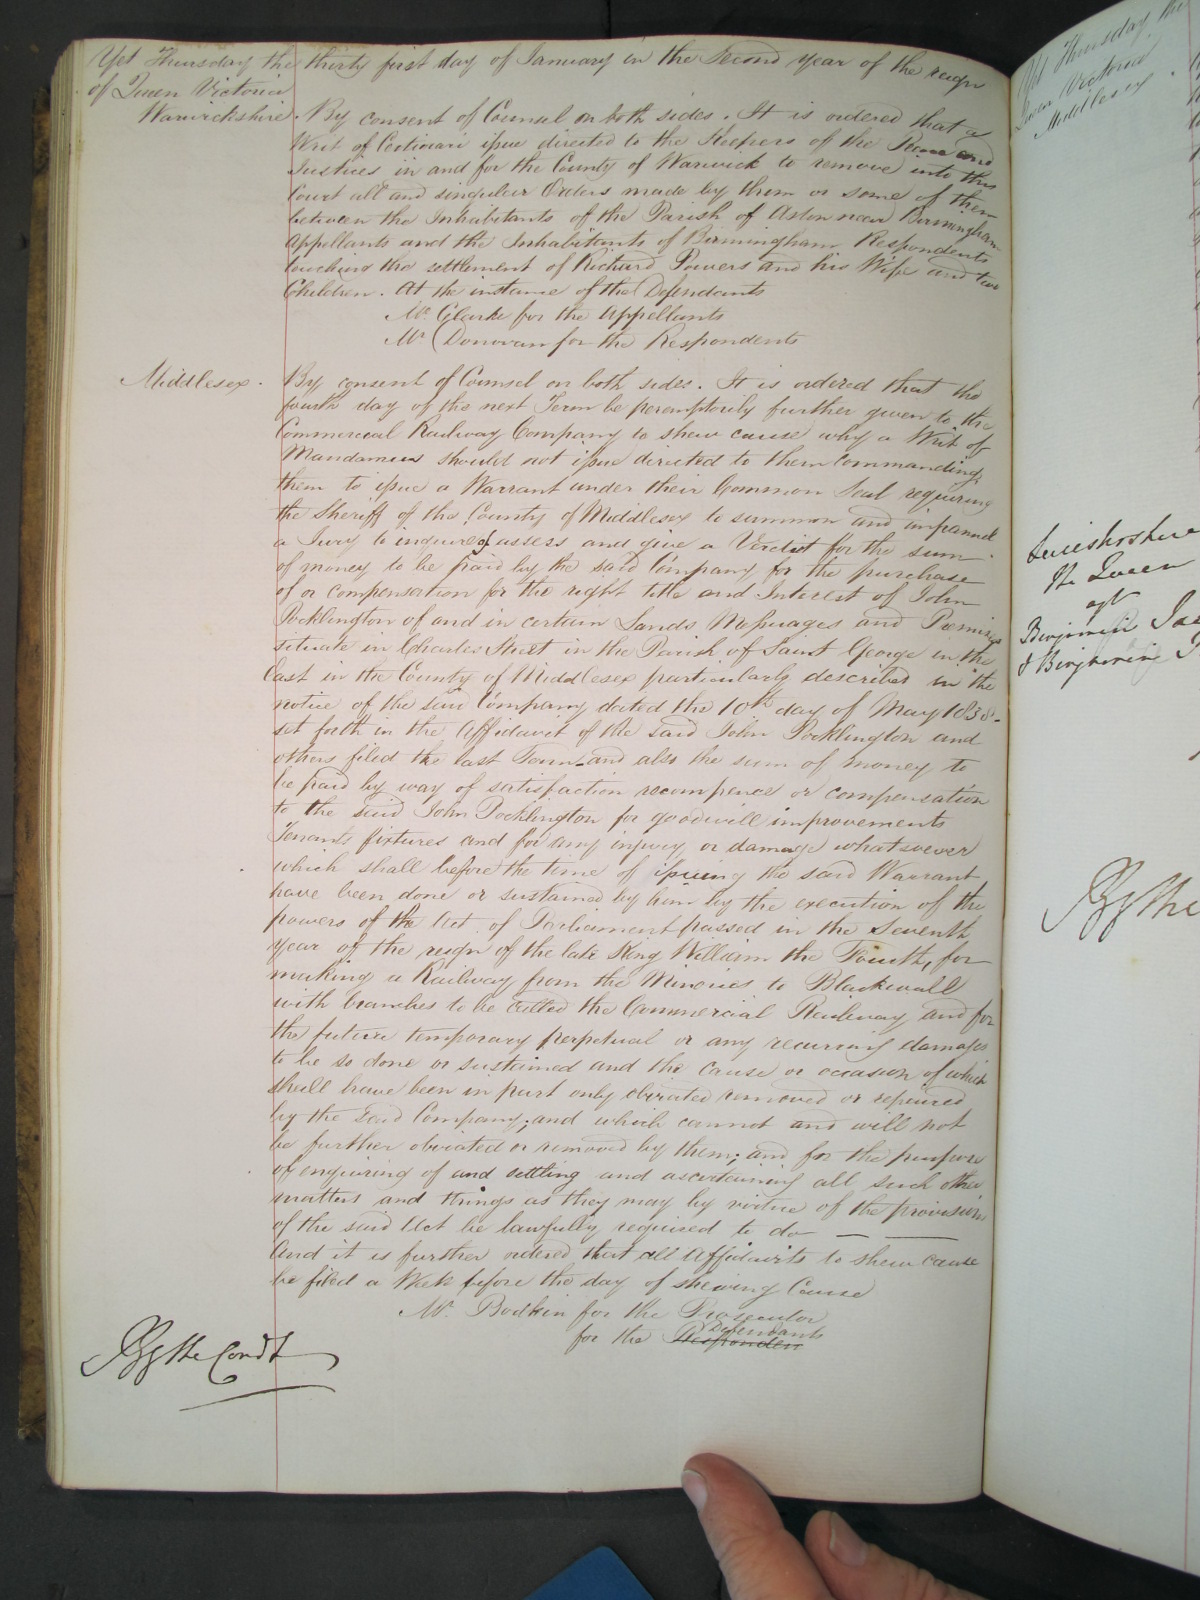 Yet Thursday the thirty first day of January in the Second year of the reign
of Queen Victoria
Warwickshire. By consent of Counsel on both sides. It is ordered that a
Writ of Certiorari issue directed to the Keepers of the Peace and
Justices in and for the County of Warwick to remove into this
Court all and singular Orders made by them or some of them
between the Inhabitants of the Parish of Aston near Birmingham
Appellants and the Inhabitants of Birmingham Respondents
touching the settlement of Richard Powers and his Wife and two
Children. At the instance of the Defendants
Mr. Clarke for the Appellants
Mr Donovan for the Respondents
Middlesex. By consent of Counsel on both sides. It is ordered that the
fourth day of the next Term be peremptorily further given to the
Commercial Railway Company to shew cause why a Writ of
Mandamus should not issue directed to them commanding
them to issue a Warrant under their Common Seal requiring
the Sheriff of the County of Middlesex to summon and impannel
a Jury to inquire of assess and give a Verdict for the sum
of money to be paid by the said Company for the purchase
of or compensation for the right title and Interest of John
Pocklington of and in certain Lands Messuages and Premises
situate in Charles Street in the Parish of Saint George in the
East in the County of Middlesex particularly described in the
notice of the said Company dated the 10th day of May 1838
set forth in the Affidavit of the said John Pocklington and
others filed the last Term and also the sum of money to
be paid by way of satisfaction recompence or compensation
to the said John Pocklington for goodwill improvements
Tenants fixtures and for any injury or damage whatsoever
which shall before the time of issuing the said Warrant
have been done or sustained by him by the execution of the
powers of the Act of Parliament passed in the Seventh
year of the reign of the late King William the Fourth, for
making a Railway from the Minories to Blackwall
with branches to be called the Commercial Railway and for
the future temporary perpetual or any recurring damages
to be so done or sustained and the cause or occasion of which
shall have been in part only obviated removed or repaired
by the said Company; and which cannot and will not
be further obviated or removed by them; and for the purpose
of enquiring of and settling and ascertaining all such other
matters and things as they may by virtue of the provisions
of the said Act be lawfully required to do — —
And it is further ordered that all Affidavits to shew cause
be filed a Week before the day of shewing Cause
Mr. Bodkin for the Prosecutor
Defendants
for the Responden
By the Court
Yet Thursday the
Queen Victoria
Middlesex
Leicestershire
The Queen
agt
Benjamin
&
By the